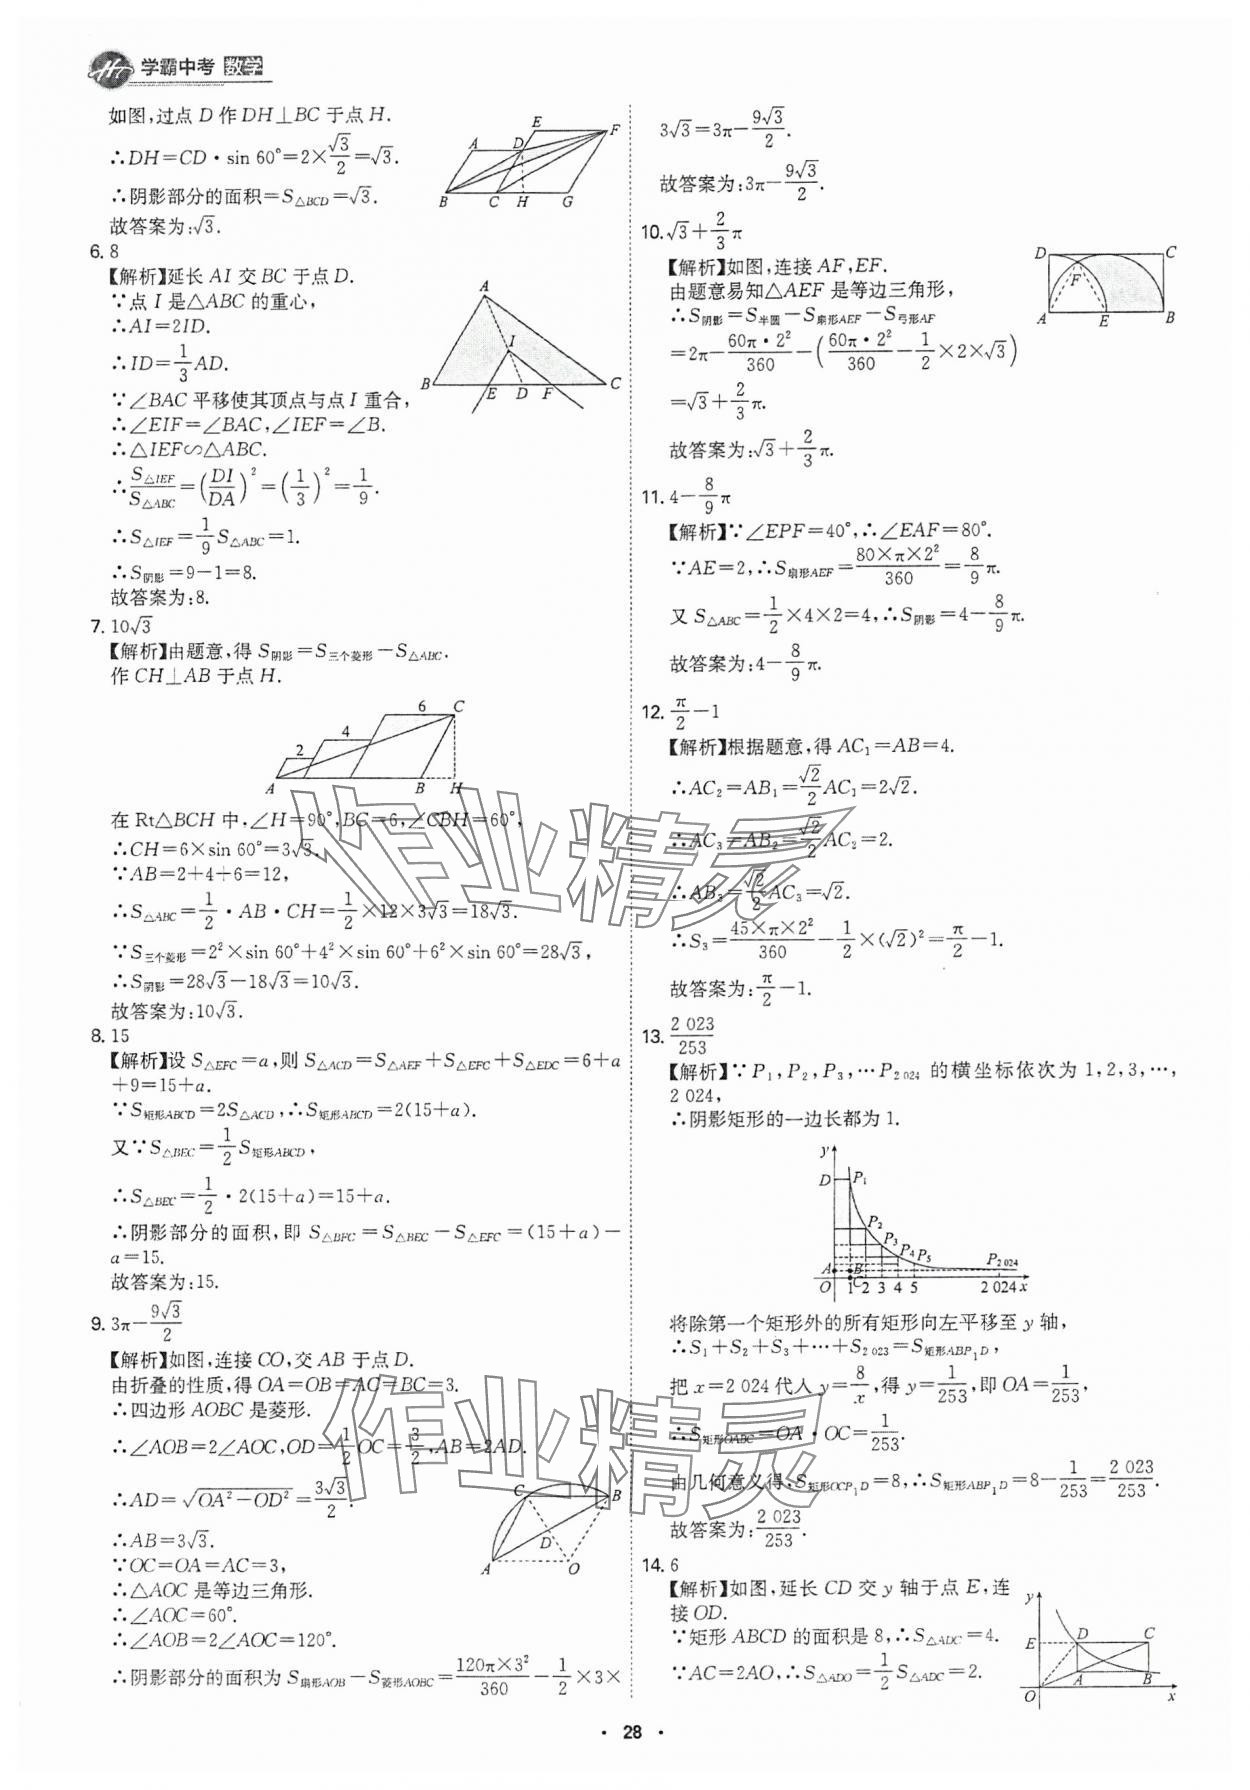 学霸中考 数学
如图,过点 D 作 DH⊥BC 于点 H.
∴DH=CD·sin 60°=2×√3/2=√3.
∴阴影部分的面积=S△BCD=√3.
故答案为:√3.
A D E F B C H G
6. 8
【解析】延长 AI 交 BC 于点 D.
∵点 I 是△ABC 的重心,
∴AI=2ID.
∴ID=1/3 AD.
∵∠BAC 平移使其顶点与点 I 重合,
∴∠EIF=∠BAC,∠IEF=∠B.
∴△IEF∽△ABC.
∴S△IEF/S△ABC=(DI/DA)²=(1/3)²=1/9.
∴S△IEF=1/9 S△ABC=1.
∴S阴影=9-1=8.
故答案为:8.
A I B E D F C
7. 10√3
【解析】由题意,得 S阴影=S三个菱形-S△ABC.
作 CH⊥AB 于点 H.
2 4 6 C A B H
在 Rt△BCH 中,∠H=90°,BC=6,∠CBH=60°,
∴CH=6×sin 60°=3√3.
∵AB=2+4+6=12,
∴S△ABC=1/2·AB·CH=1/2×12×3√3=18√3.
∵S三个菱形=2²×sin 60°+4²×sin 60°+6²×sin 60°=28√3,
∴S阴影=28√3-18√3=10√3.
故答案为:10√3.
8. 15
【解析】设 S△EFC=a,则 S△ACD=S△AEF+S△EFC+S△EDC=6+a
+9=15+a.
∵S矩形ABCD=2S△ACD,∴S矩形ABCD=2(15+a).
又∵S△BEC=1/2 S矩形ABCD,
∴S△BEC=1/2·2(15+a)=15+a.
∴阴影部分的面积,即 S△BFC=S△BEC-S△EFC=(15+a)-
a=15.
故答案为:15.
9. 3π-9√3/2
【解析】如图,连接 CO,交 AB 于点 D.
由折叠的性质,得 OA=OB=AC=BC=3.
∴四边形 AOBC 是菱形.
∴∠AOB=2∠AOC,OD=1/2 OC=3/2,AB=2AD.
∴AD=√(OA²-OD²)=3√3/2.
∴AB=3√3.
∵OC=OA=AC=3,
∴△AOC 是等边三角形.
∴∠AOC=60°.
∴∠AOB=2∠AOC=120°.
C B D A O
∴阴影部分的面积为 S扇形AOB-S菱形AOBC=120π×3²/360-1/2×3×
3√3=3π-9√3/2.
故答案为:3π-9√3/2.
10. √3+2/3π
【解析】如图,连接 AF,EF.
由题意易知△AEF 是等边三角形,
∴S阴影=S半圆-S扇形AEF-S弓形AF
=2π-60π·2²/360-(60π·2²/360-1/2×2×√3)
=√3+2/3π.
故答案为:√3+2/3π.
D C F A E B
11. 4-8/9π
【解析】∵∠EPF=40°,∴∠EAF=80°.
∵AE=2,∴S扇形AEF=80×π×2²/360=8/9π.
又 S△ABC=1/2×4×2=4,∴S阴影=4-8/9π.
故答案为:4-8/9π.
12. π/2-1
【解析】根据题意,得 AC₁=AB=4.
∴AC₂=AB₁=√2/2 AC₁=2√2.
∴AC₃=AB₂=√2/2 AC₂=2.
∴AB₃=√2/2 AC₃=√2.
∴S₃=45×π×2²/360-1/2×(√2)²=π/2-1.
故答案为:π/2-1.
13. 2 023/253
【解析】∵P₁,P₂,P₃,…P₂ ₀₂₄ 的横坐标依次为 1,2,3,…,
2 024,
∴阴影矩形的一边长都为 1.
y D P₁ P₂ P₃ P₄ P₅ P₂ ₀₂₄ A B O C 1 2 3 4 5 2 024 x
将除第一个矩形外的所有矩形向左平移至 y 轴,
∴S₁+S₂+S₃+…+S₂ ₀₂₃=S矩形ABP₁D,
把 x=2 024代人 y=8/x,得 y=1/253,即 OA=1/253,
∴S矩形OABC=OA·OC=1/253.
由几何意义得,S矩形OCP₁D=8,∴S矩形ABP₁D=8-1/253=2 023/253.
故答案为:2 023/253.
14. 6
【解析】如图,延长 CD 交 y 轴于点 E,连
接 OD.
∵矩形 ABCD 的面积是 8,∴S△ADC=4.
∵AC=2AO,∴S△ADO=1/2 S△ADC=2.
y E D C O A B x
作业精灵
作业精灵
· 28 ·